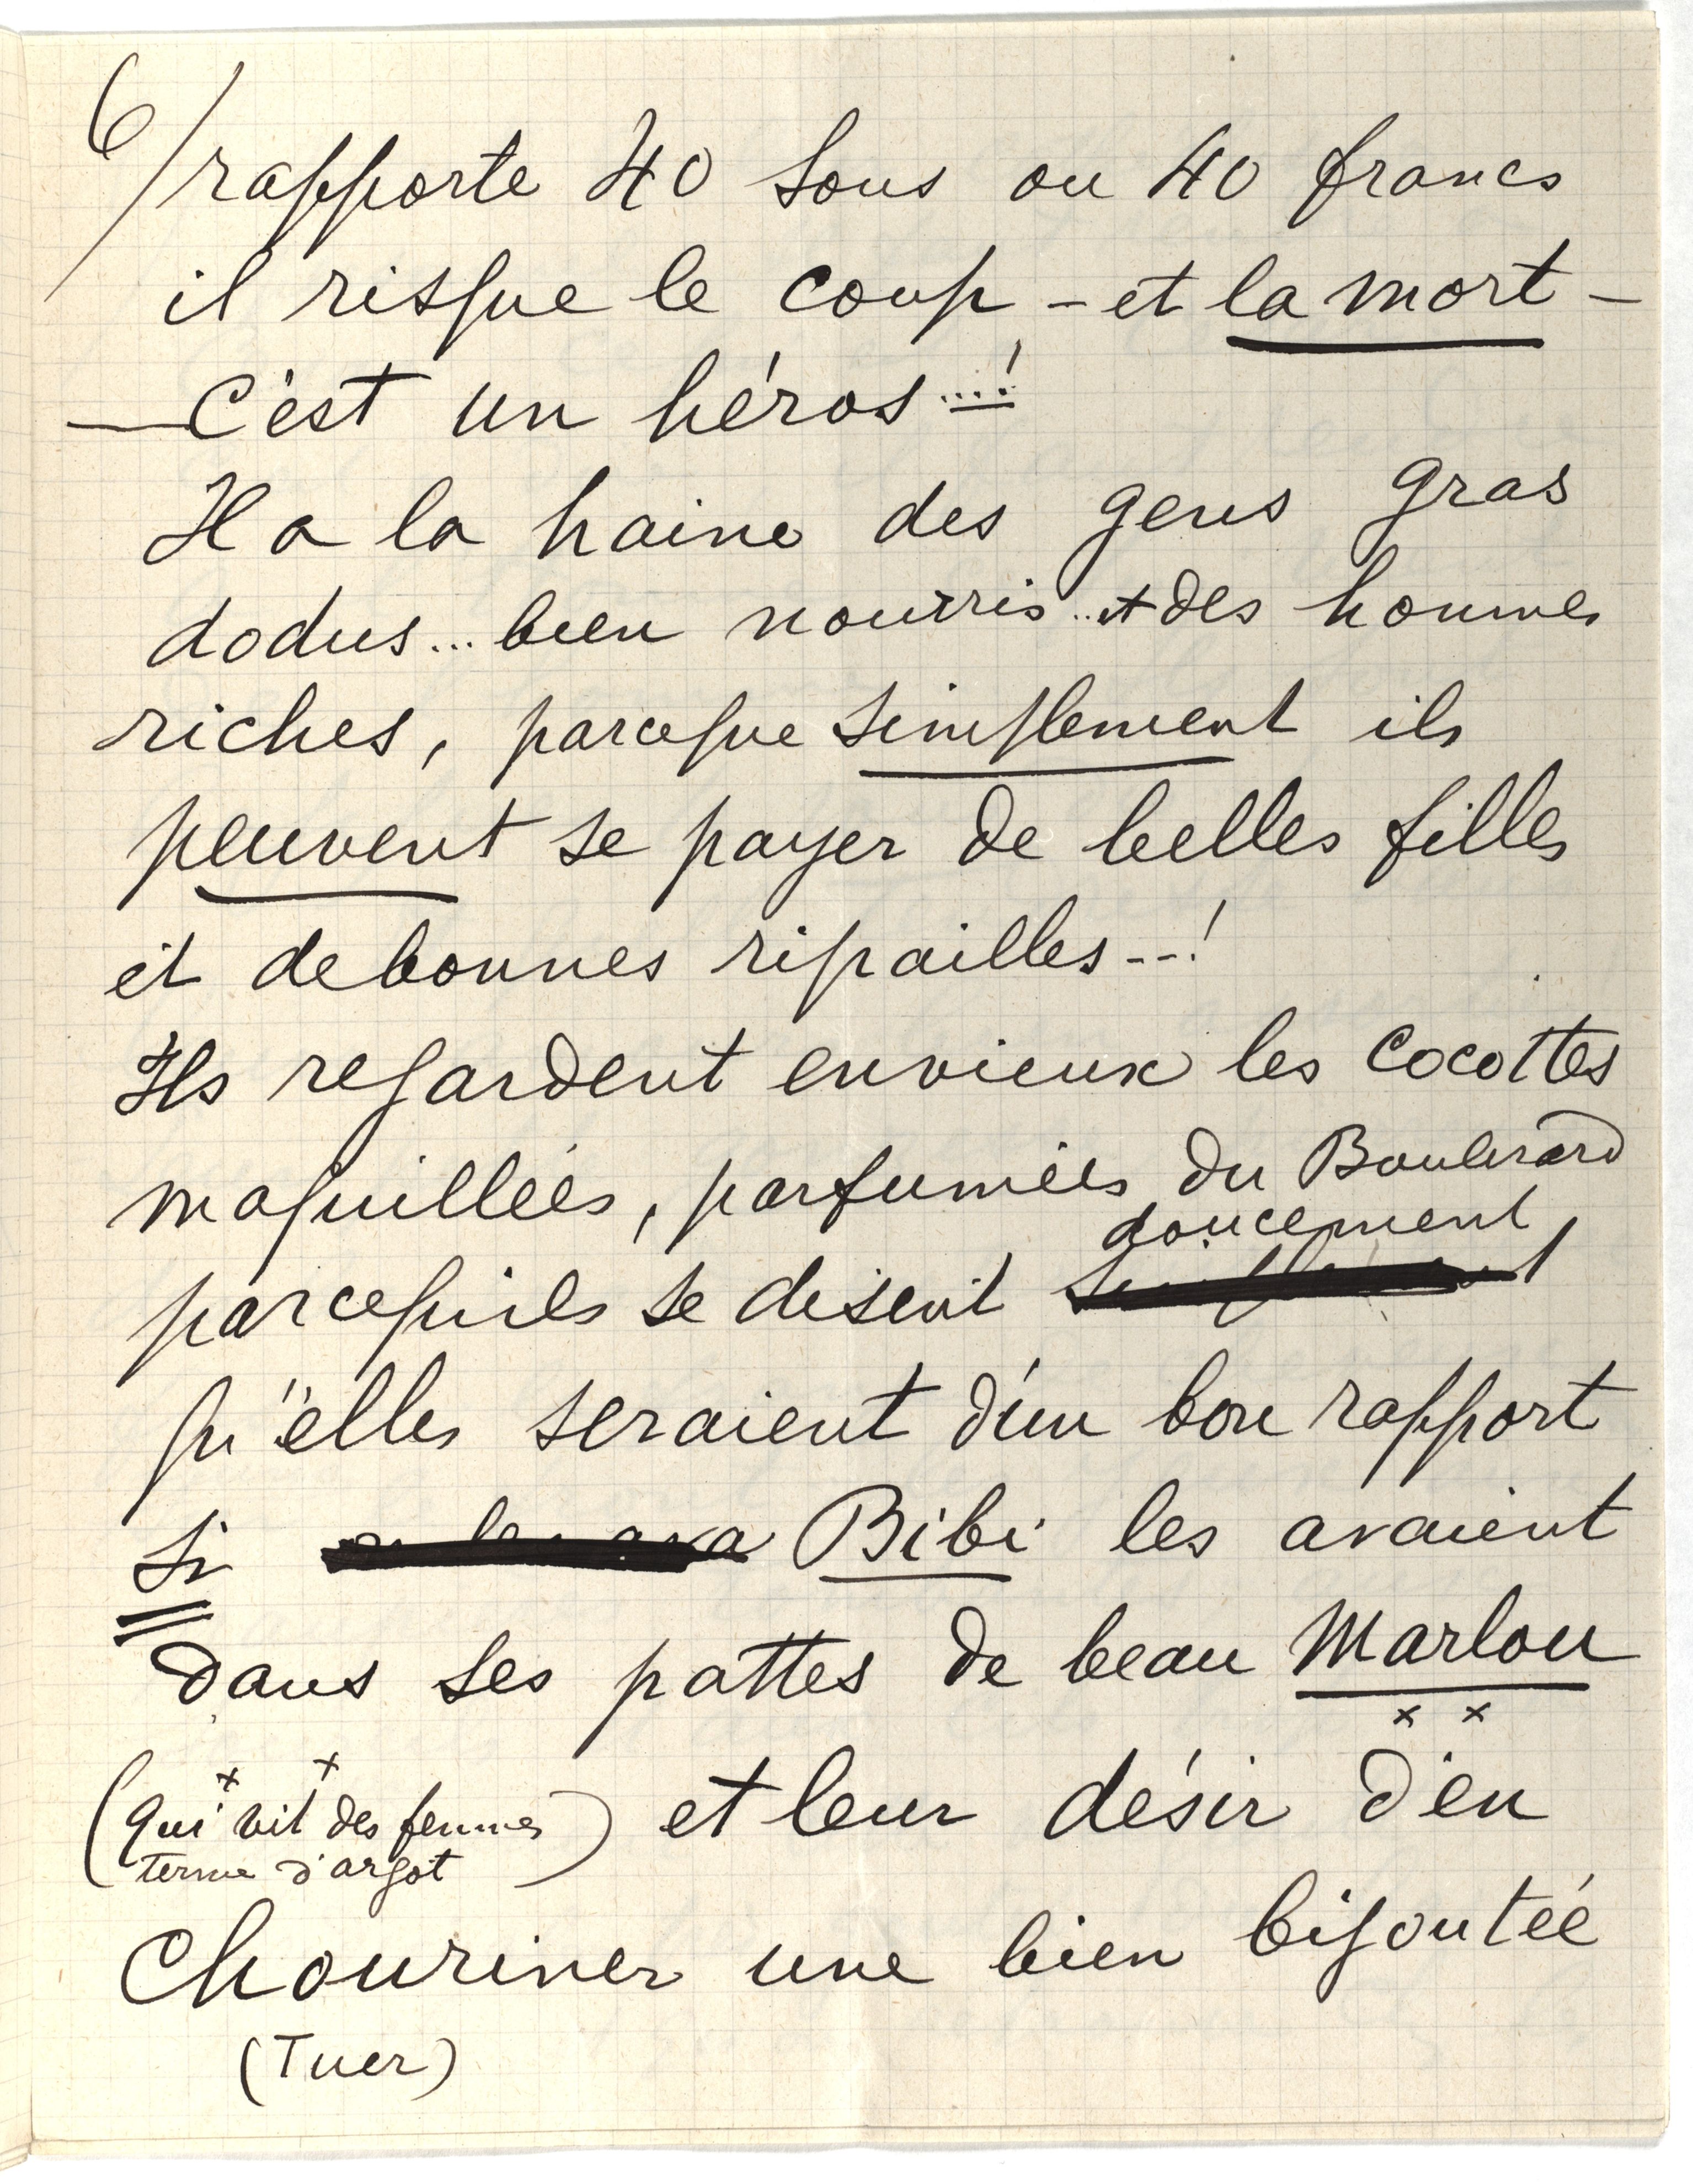 6/
rapporte 40 sous ou 40 francs
il risque le coup - et la mort -
— C'est un héros...!
Il a la haine des gens gras
dodus... bien nourris.. et des hommes
riches, parceque simplement ils
peuvent se payer de belles filles
et de bonnes ripailles--!
Ils regardent envieux les cocottes
maquillées, parfumées du Boulevard
doucement,
parcequ'ils se disent
qu'elles seraient d'un bon rapport
si Bibi les avaient
dans ses pattes de beau Marlou
x x
x x
(qui vit des femmes
terme d'argot) et leur désir d'en
Chouriner une bien bijoutée
(Tuer)